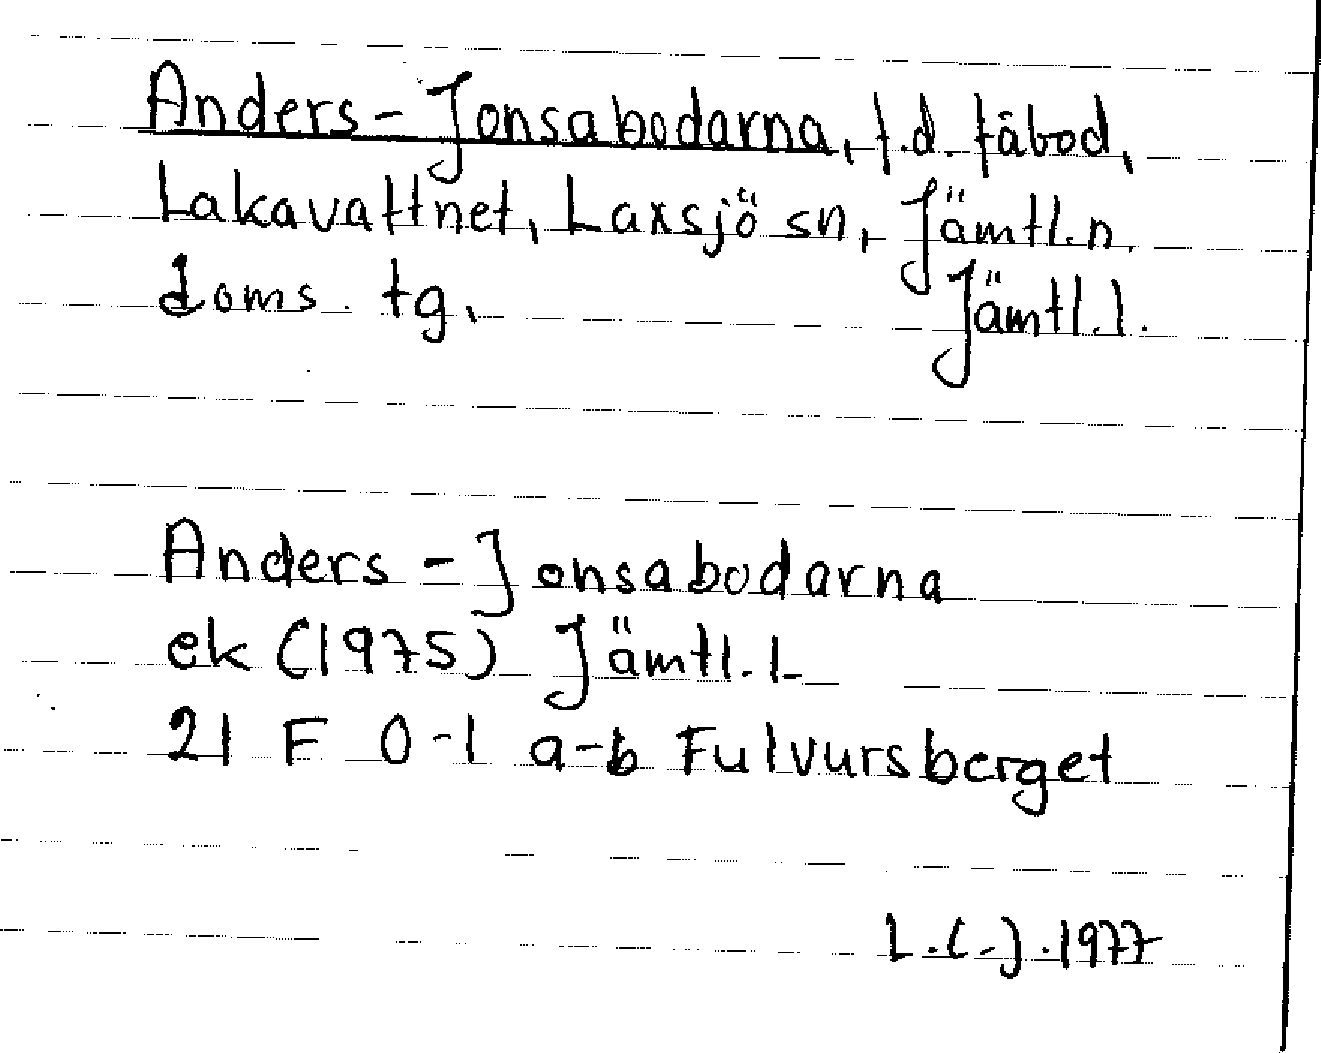 Anders-Jonsabodarna, f.d. fäbod,
Lakavattnet, Laxsjö sn, Jämtl.n.
doms. tg. Jämtl.l.
Anders-Jonsabodarna
ek (1975) Jämtl.l.
21 F 0-1 a-b Fulvursberget
L.C.J. 1977